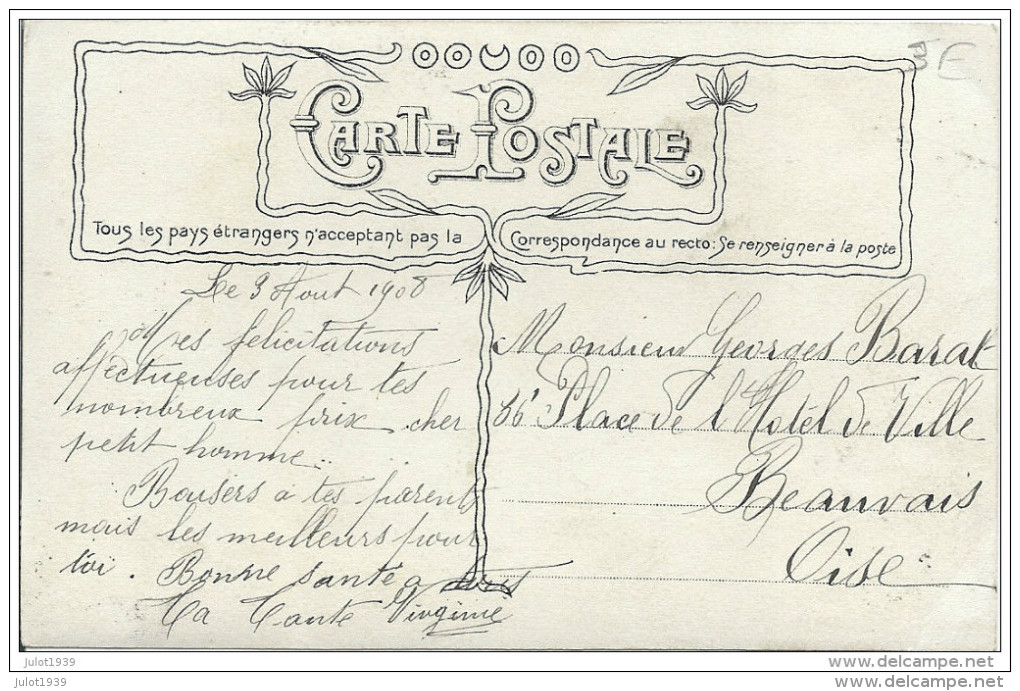 5E
CARTE POSTALE
Tous les pays étrangers n'acceptant pas la Correspondance au recto: Se renseigner à la poste
Le 3 Aout 1908
Mes felicitations
affectueuses pour tes
nombreux prix cher
petit homme.
Baisers a tes parents
mais les meilleurs pour
toi. Bonne santé a tous
Ta Tante Virginie
Monsieur Georges Barat
36 Place de l'Hotel de Ville
Beauvais
Oise
julot1939
julot1939
www.delcampe.net
www.delcampe.net